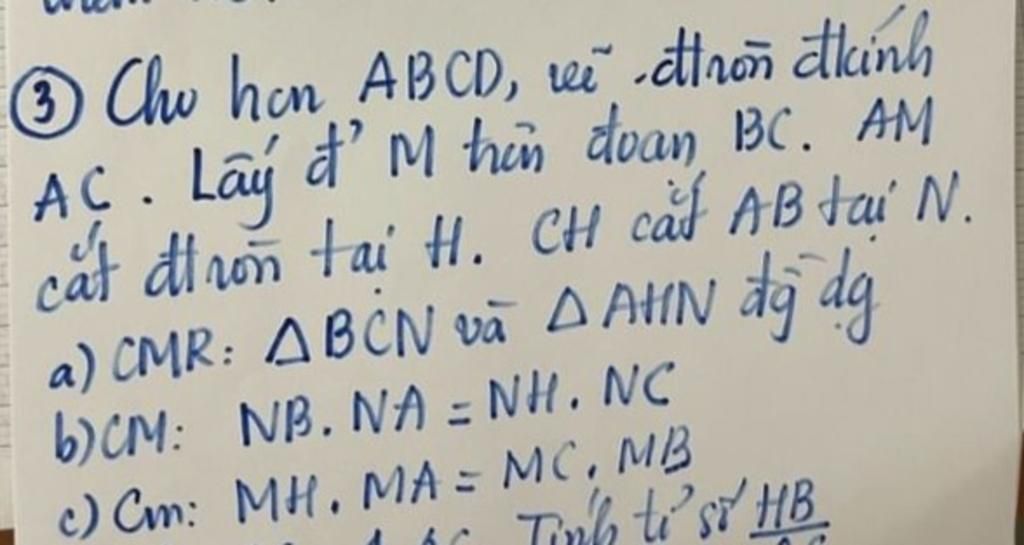 ③ Cho hcn ABCD, vẽ đtròn đkính
AC. Lấy đ' M trên đoạn BC. AM
cắt đtròn tại H. CH cắt AB tại N.
a) CMR: ΔBCN và ΔAHN đg dg
b) CM: NB.NA = NH.NC
c) Cm: MH.MA = MC.MB
Tính tỉ số HB